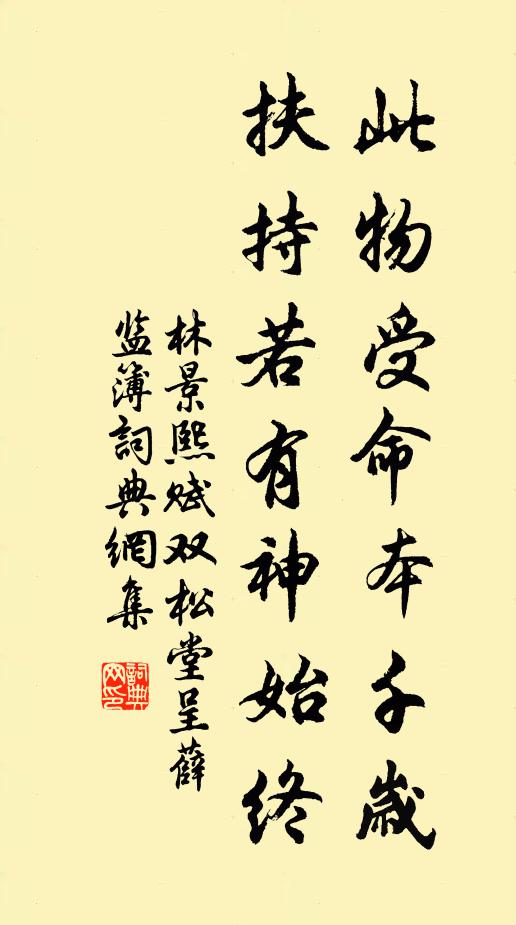 此物受命本千歲
扶持若有神始終
林景熙赋双松堂呈薛
监簿詞典網集
詞典网印